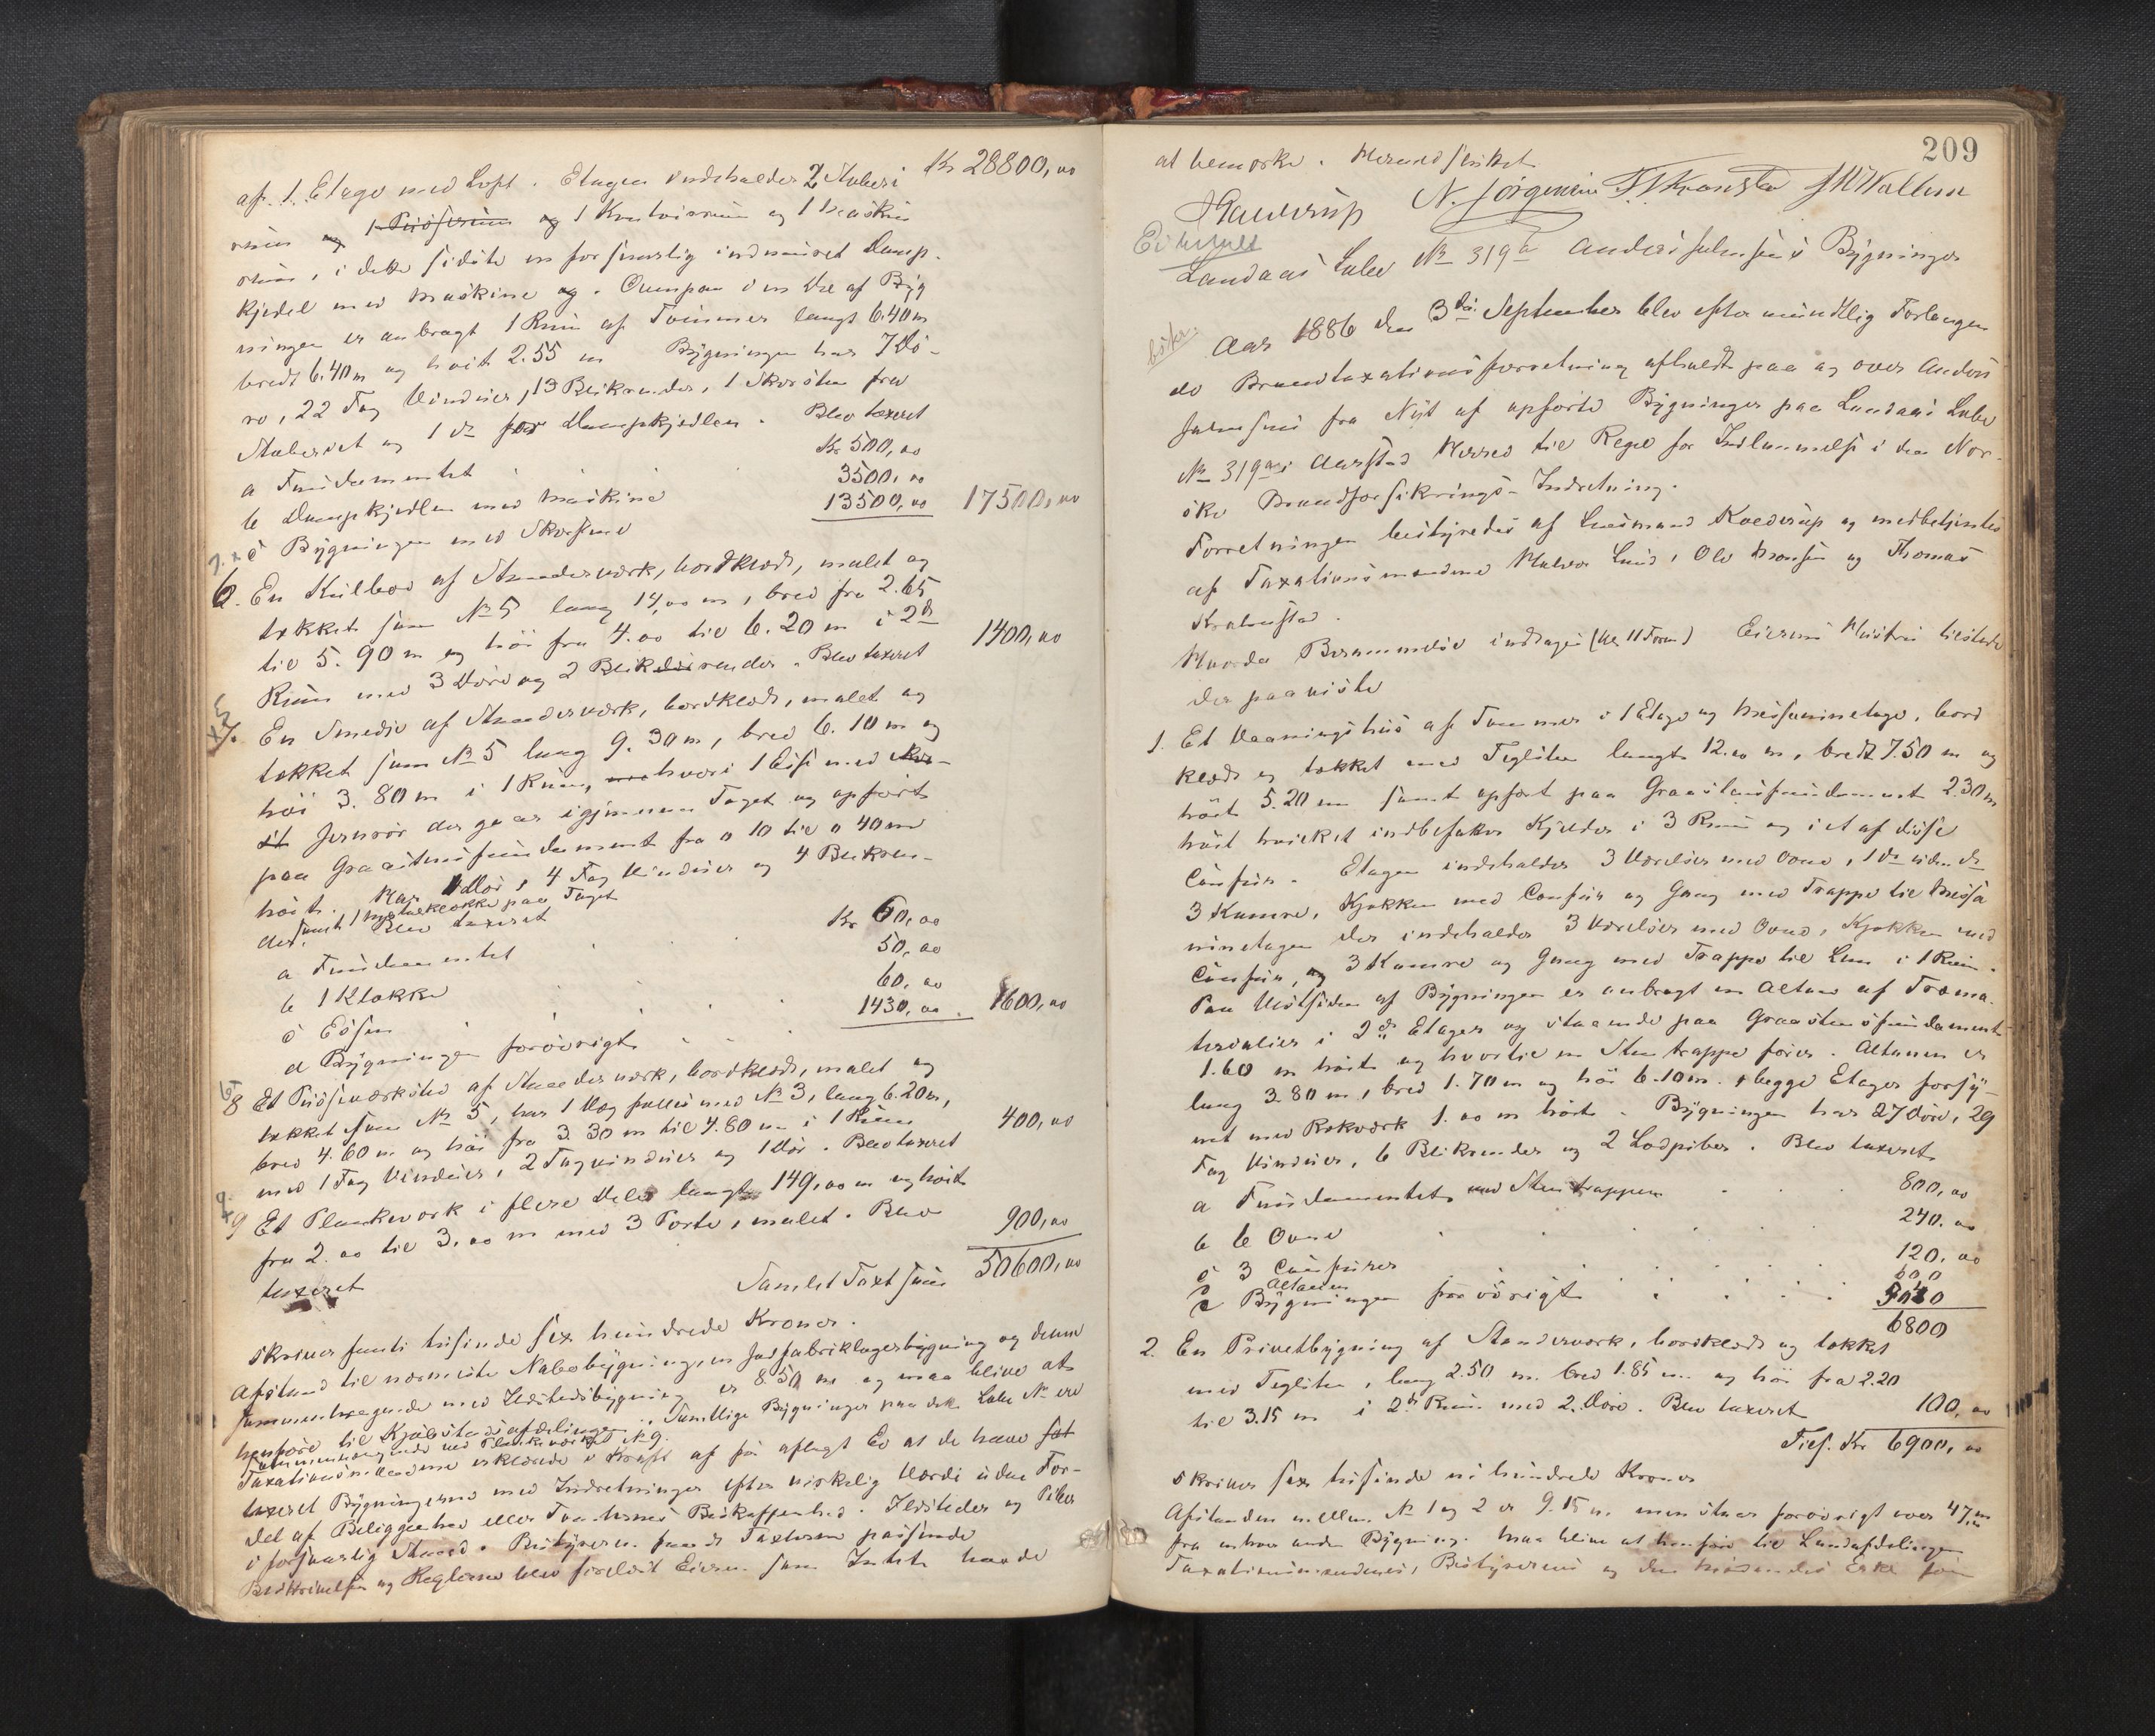 Kr 28800,00
af 1 Etage med Loft. Etagen indeholder 2 Støberi
rum og 1 Pudserum og 1 Kontoirrum og 1 Maskin
rum, i dette sidste en forsvarlig indmuret Damp-
kjedel med Maskine og. Ovenpaa i en Del af Byg
ningen er anbragt 1 Rum af Tømmer langt 6.40 m
bredt 6.40 m og høit 2.55 m Bygningen har 7 Dø-
re, 22 Fag Vinduer, 13 Blikrender, 1 Skorsten fra
Støberiet og 1 do for Dampkjedlen. Blev taxeret
a Fundamentet Kr 500,00
b Dampkjedlen med Maskine 3500,00
c Bygningen med Skorstene 13500,00 17500,00
6. En Kulbod af Stenderværk, bordklædt, malet og
tækket som No 5 lang 14,00 m, bred fra 2.65
til 5.90 m og høi fra 4.00 til 6.20 m i 2de
Rum med 3 Døre og 2 Blikrender. Blev taxeret 1400,00
7. En Smedie af Stenderværk, bordklædt, malet og
tækket som No 5 lang 9.30 m, bred 6.10 m og
høi 3.80 m i 1 Rum, hvori 1 Esse med
et Jernrør der gaar igjennem Taget og opført
paa Graastensfundament fra 0 10 til 0 40 m
høit. Har 1 Dør, 4 Fag Vinduer og 4 Blikren-
der, samt 1 Klokke paa Taget
Blev taxeret
a Fundamentet Kr 60,00
b 1 Klokke 50,00
c Essen 60,00
d Bygningen forøvrigt 1430,00 1600,00
8 Et Pudseværksted af Stenderværk, bordklædt, malet og
tækket som No 5, har 1 Væg fælles med No 3, lang 6.20 m,
bred 4.60 m og høi fra 3.30 m til 4.80 m i 1 Rum
med 1 Fag Vinduer, 2 Tagvinduer og 1 Dør. Blev taxeret 400,00
9 Et Plankeværk i flere Dele langt 149,00 m og høit
fra 2.00 til 3.00 m med 3 Porte, malet. Blev
taxeret 900,00
Samlet Taxtsum 50600,00
skriver femti tusinde sex hundrede Kroner.
Afstand til nærmeste Nabobygning, en Jasfabriklagerbygning og denne
sammenhængende med Ildstedsbygning er 8.50 m og maa blive at
henføre til Kjøbstadsafdelingen. Samtlige Bygninger paa dette Løbe No ere
sammenhængende ved Plankeværket No 9.
Taxationsmændene erklærede i Kraft af før aflagt Ed at de have
taxeret Bygningerne med Indretninger efter virkelig Værdi uden For-
del af Beliggenhed eller Tomternes Beskaffenhed. Ildsteder og Piber
i forsvarlig Stand. Bestyreren fandt Taxterne passende
Beskrivelsen og Reglerne blev forelæst Eieren som Intet havde
209
at bemærke. Hermed sluttet
Kaderup N. Jørgensen T. Kronstad J H Wallem
Landaas Løbe No 319a Anders Johnsens Bygninger
Aar 1886 den 3die September blev efter mundtlig Forlangen
de Brandtaxationsforretning afholdt paa og over Anders
Johnsens fra Nyt af opførte Bygninger paa Landaas Løbe
No 319a i Aarstad Herred til Regel for Indlemmelse i den Nor-
ske Brandforsikrings-Indretning.
Forretningen bestyredes af Lensmand Kaderup og medbetjentes
af Taxationsmændene Halvor Lund, Ole Monsen og Thomas
Kronstad.
Hvorda Berammelse inddages (Kl 11 Form) Eierens Hustru tilstede
der paaviste
1. Et Vaaningshus af Tømmer i 1 Etage og Messaninetage, bord
klædt og tækket med Tegl­sten langt 12.00 m, bredt 7.50 m og
høit 5.20 m samt opført paa Graastensfundament 2.30 m
høit hvilket indbefatter Kjelder i 3 Rum og i et af disse
Comfur. Etagen indeholder 3 Værelser med Ovne, 1 do uden do
3 Kamre, Kjøkken med Comfur og Gang med Trappe til Messa
ninetagen der indeholder 3 Værelser med Ovne, Kjøkken med
Comfur, og 3 Kamre og Gang med Trappe til Loen i 1 Rum.
Paa Vestsiden af Bygningen er anbragt en Altan af Træma-
terialier i 2de Etager og staaende paa Graastensfundament
1.60 m høit og hvortil en Stentrappe fører. Altanen er
lang 3.80 m, bred 1.70 m og høi 6.10 m. begge Etager forsy-
net med Rækværk 1.00 m høit. Bygningen har 27 Døre, 29
Fag Vinduer, 6 Blikrender og 2 Lodpiber. Blev taxeret
a Fundamentet med Stentrappen 800,00
b 6 Ovne 240,00
c 3 Comfurer 120,00
Altanen 600
e Bygningen forøvrigt 5040
6800
2. En Privetbygning af Stenderværk, bordklædt og tækket
med Teglsten, lang 2.50 m. bred 1.85 m. og høi fra 2.20
til 3.15 m i 2de Rum med 2 Døre. Blev taxeret 100,00
Tils. Kr 6900,00
skriver sex tusinde ni hundrede Kroner
Afstanden mellem No 1 og 2 er 9.15 m. men staar forøvrigt over 47 m
fra enhver anden Bygning. Maa blive at henføre til Landafdelingen
Taxationsmændenes, Bestyrerens og den